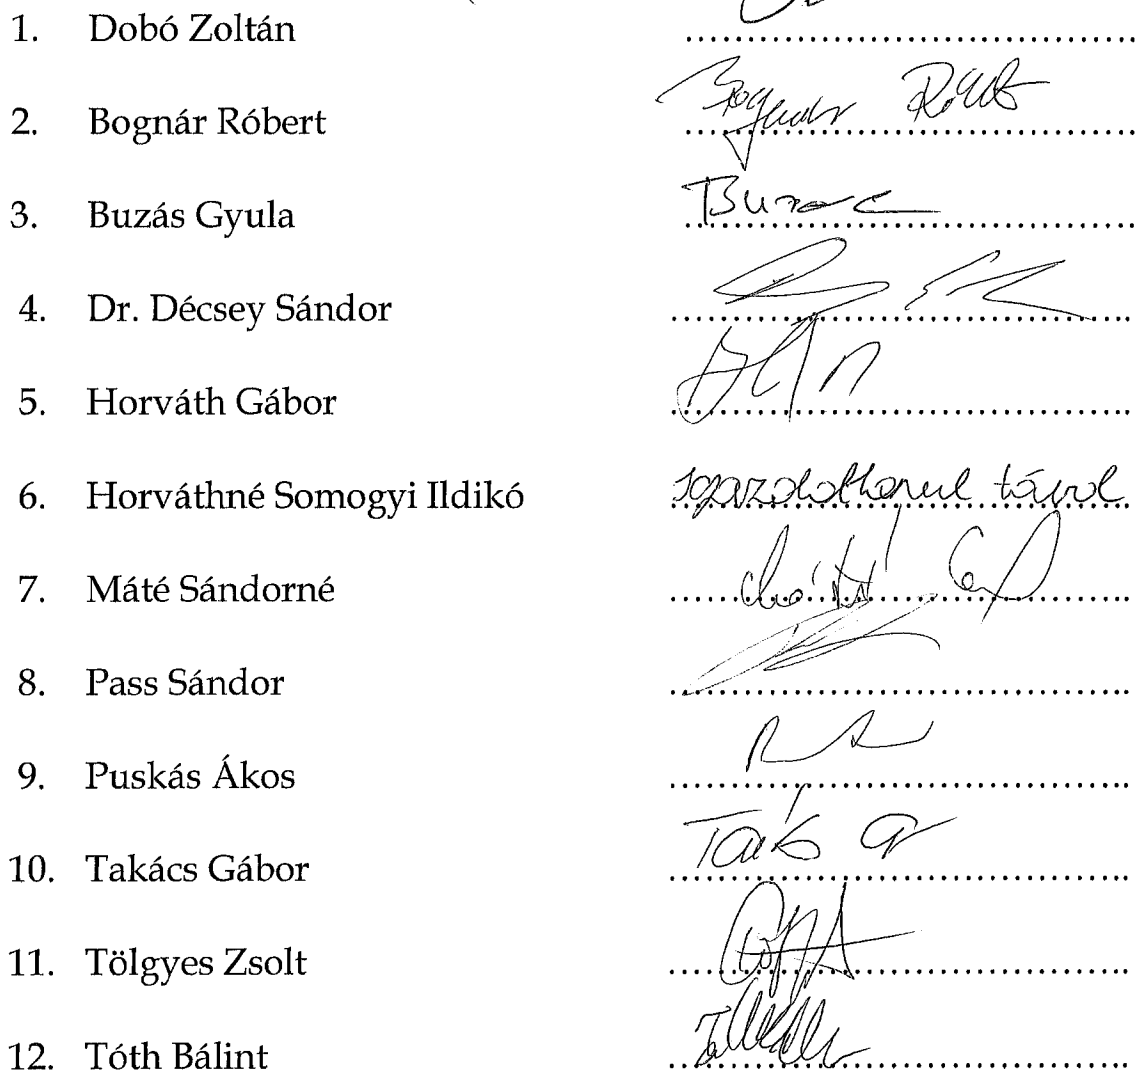 1. Dobó Zoltán
2. Bognár Róbert Bognár Róbert
3. Buzás Gyula Buzás
4. Dr. Décsey Sándor
5. Horváth Gábor
6. Horváthné Somogyi Ildikó igazolatlanul távol
7. Máté Sándorné
8. Pass Sándor
9. Puskás Ákos
10. Takács Gábor
11. Tölgyes Zsolt
12. Tóth Bálint